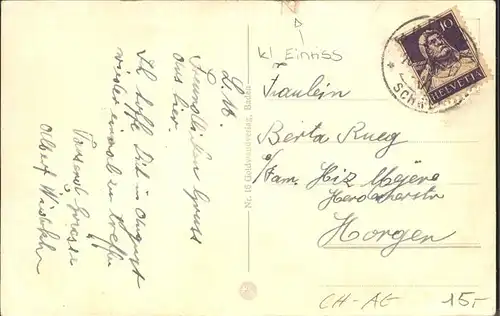 kl Einriss
L. B.
Freundlichen Gruss
aus hier.
Ich hoffe Dich im August
wieder einmal zu treffen
Tausend Grüsse
Albert
Nr. 16 Verlag, Baden
Fräulein
Berta Rueg
b/Fam. Hiz Meyer
Horgen
10
HELVETIA
SCHW
CH-AG
15,-